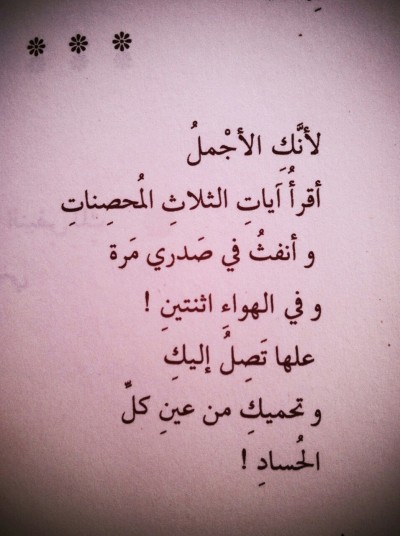 لأنَّكِ الأجْملُ
أقرأُ آياتِ الثلاثِ المُحصِناتِ
و أنفثُ في صَدري مَرة
و في الهواءِ اثنتينِ !
علها تَصِلُ إليكِ
و تحميكِ من عينِ كلِّ
الحُسادِ !